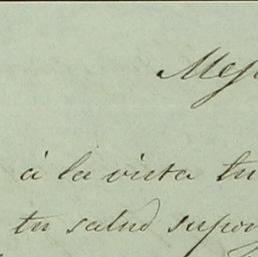 Mej
á la vista tu
tu salud supon